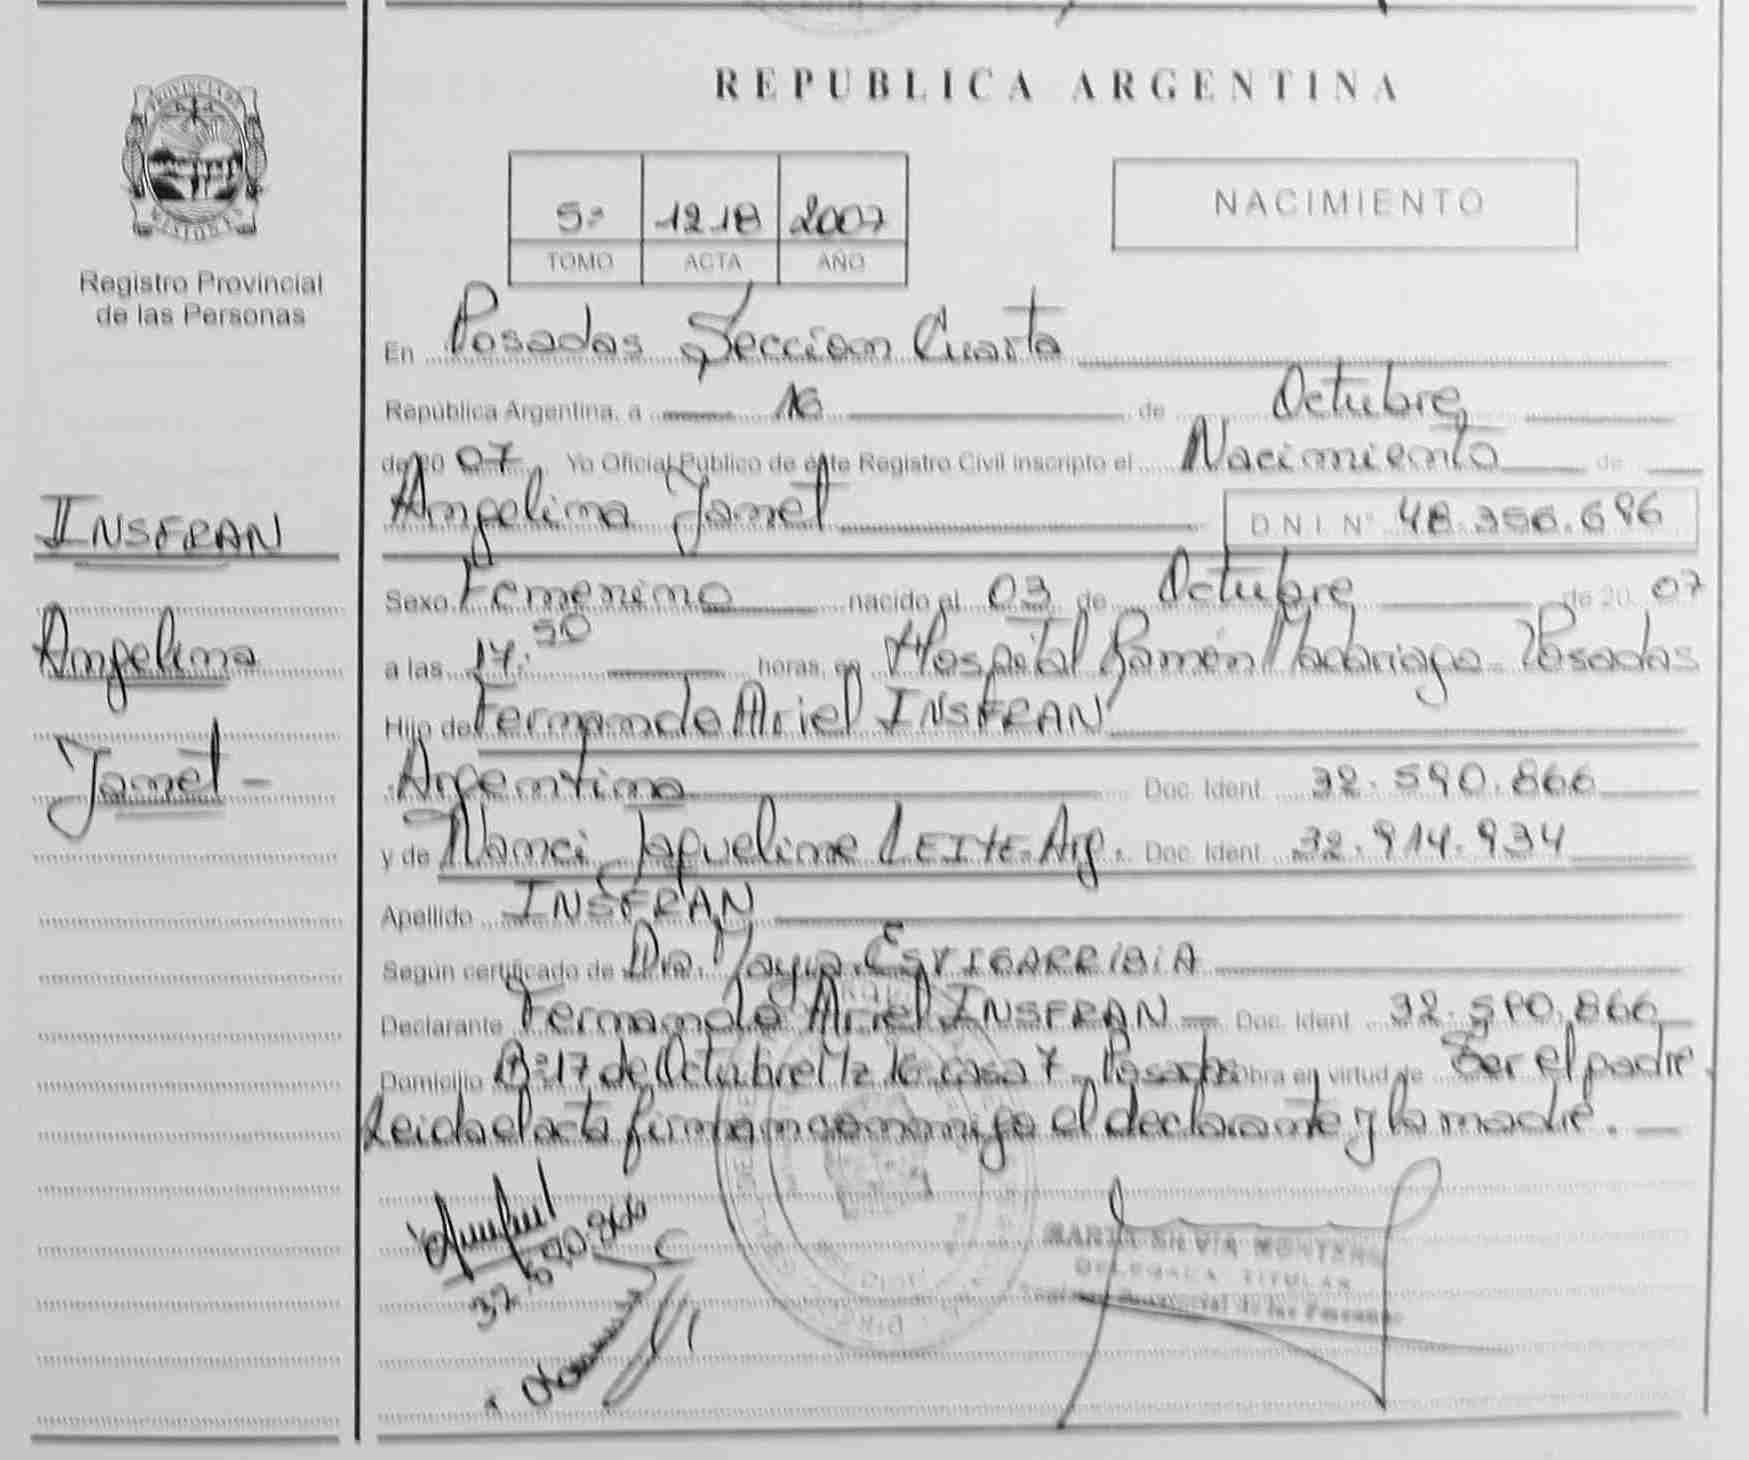 REPUBLICA ARGENTINA
PROVINCIA DE
MISIONES
Registro Provincial
de las Personas
5º 1218 2007
TOMO ACTA AÑO
NACIMIENTO
En Posadas Seccion Cuarta
República Argentina, a 16 de Octubre
de 20 07 Yo Oficial Público de éste Registro Civil inscripto el Nacimiento de
Angelina Janet D.N.I. Nº 48.356.696
INSFRAN
Angelina
Janet -
Sexo Femenino nacido el 03 de Octubre de 20 07
a las 17:50 horas, en Hospital Ramón Madariaga - Posadas
Hijo de Fernando Ariel INSFRAN
Argentino Doc. Ident. 32.590.866
y de Nanci Jaqueline LEITE - Arg. Doc. Ident. 32.914.934
Apellido INSFRAN
Según certificado de Dra. ESTIGARRIBIA
Declarante Fernando Ariel INSFRAN - Doc. Ident. 32.590.866
Domicilio Bº 17 de Octubre Mz 16 casa 7 - Posadas Obra en virtud de Ser el padre.
Leida el acta firman conmigo el declarante y la madre. -
MARIA SILVIA MONTERO
DELEGADA TITULAR
Registro Provincial de las Personas